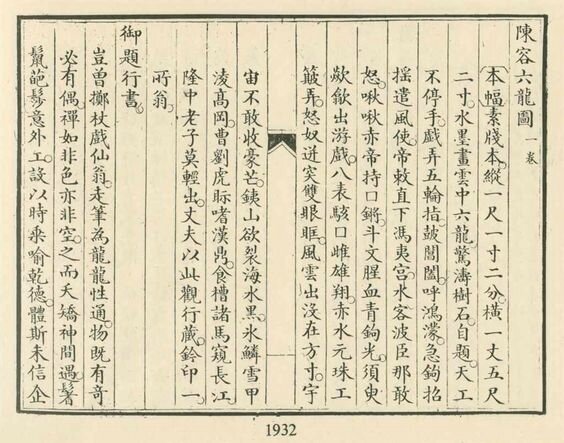 陳容六龍圖 一卷
本幅素牋本縱一尺一寸二分橫一丈五尺
二寸水墨畫雲中六龍驚濤樹石自題天工
不停手戲弄五輪指皷闔闢呼鴻濛急鉤招
搖遣風使帝敕直下馮夷宮水客波臣那敢
怒啾啾赤帝持口鏘斗文腥血青鉤光須臾
歘歙出游戲八表駭口雌雄翔赤水元珠工
簸弄怒奴迸突雙眼眶風雲出沒在方寸宇
宙不敢收豪芒銕山欲裂海水黑氷鱗雪甲
淩高岡曹劉虎眎者漢鼎食槽諸馬窺長江
隆中老子莫輕出丈夫以此觀行藏鈐印一
所翁
御題行書
豈曾擲杖戲仙翁走筆為龍龍性通物既有奇
必有偶禪如非色亦非空之而夭矯神間遇鬐
鬣葩髿意外工設以時乗喻乾德體斯未信企
1932